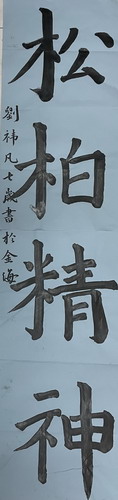 松柏精神
劉祎凡七歲書於金海